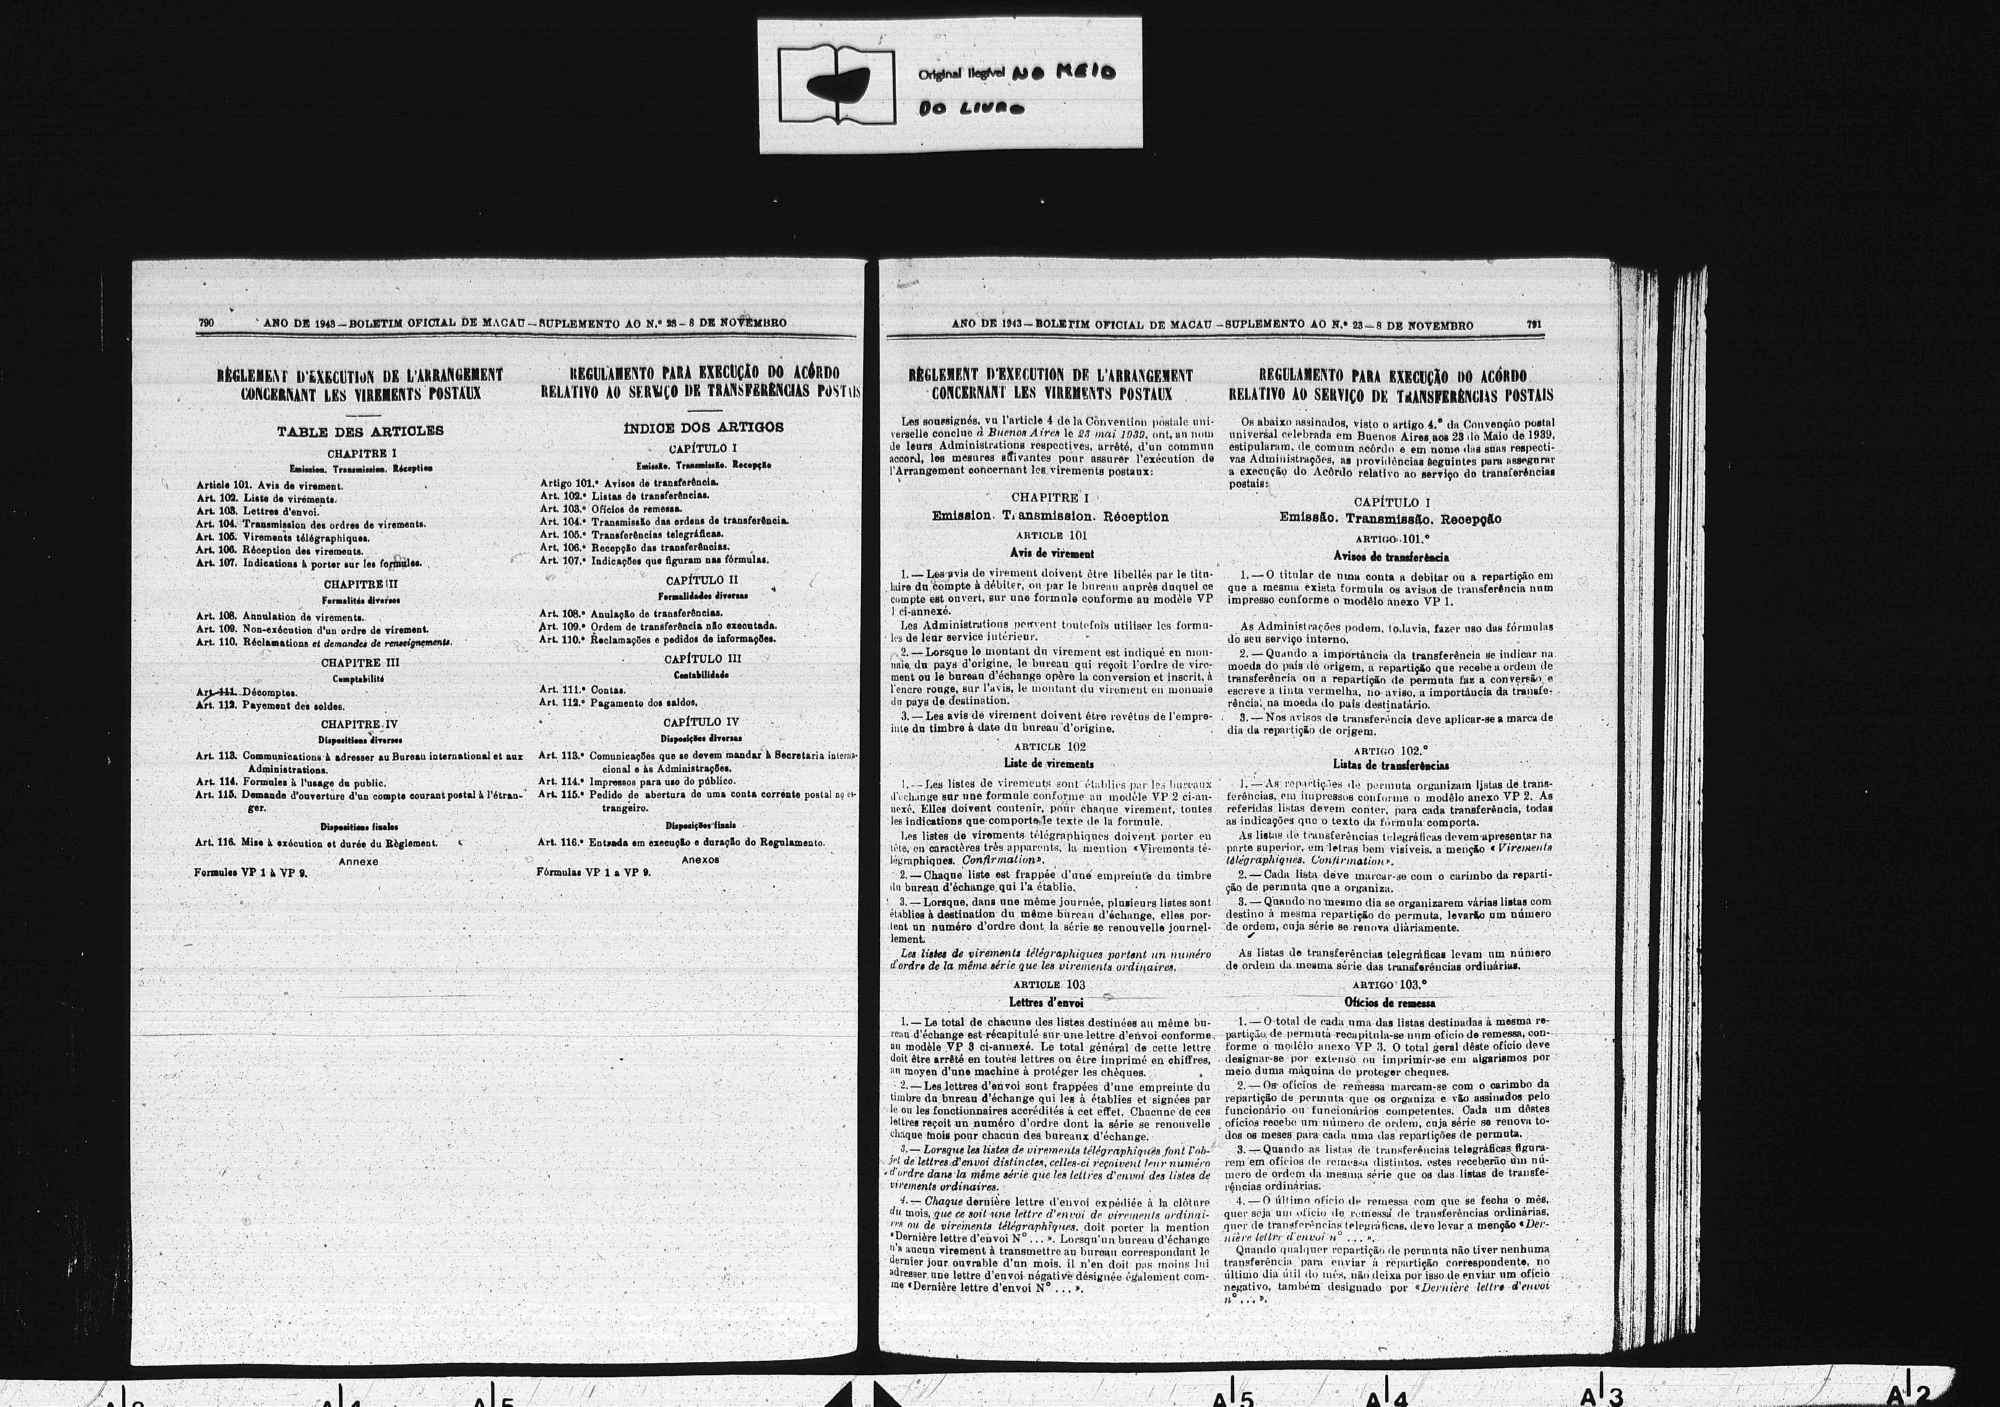 Original Ilegível NO MEIO
DO LIVRO
790 ANO DE 1943 — BOLETIM OFICIAL DE MACAU — SUPLEMENTO AO N.º 23 — 8 DE NOVEMBRO
RÈGLEMENT D'EXECUTION DE L'ARRANGEMENT
CONCERNANT LES VIREMENTS POSTAUX
TABLE DES ARTICLES
CHAPITRE I
Emission. Transmission. Réception
Article 101. Avis de virement.
Art. 102. Liste de virements.
Art. 103. Lettres d'envoi.
Art. 104. Transmission des ordres de virements.
Art. 105. Virements télégraphiques.
Art. 106. Réception des virements.
Art. 107. Indications à porter sur les formules.
CHAPITRE II
Formalités diverses
Art. 108. Annulation de virements.
Art. 109. Non-exécution d'un ordre de virement.
Art. 110. Réclamations et demandes de renseignements.
CHAPITRE III
Comptabilité
Art. 111. Décomptes.
Art. 112. Payement des soldes.
CHAPITRE IV
Dispositions diverses
Art. 113. Communications à adresser au Bureau international et aux
Administrations.
Art. 114. Formules à l'usage du public.
Art. 115. Demande d'ouverture d'un compte courant postal à l'étran-
ger.
Dispositions finales
Art. 116. Mise à exécution et durée du Règlement.
Annexe
Formules VP 1 à VP 9.
REGULAMENTO PARA EXECUÇÃO DO ACÔRDO
RELATIVO AO SERVIÇO DE TRANSFERÊNCIAS POSTAIS
ÍNDICE DOS ARTIGOS
CAPÍTULO I
Emissão. Transmissão. Recepção
Artigo 101.º Avisos de transferência.
Art. 102.º Listas de transferências.
Art. 103.º Ofícios de remessa.
Art. 104.º Transmissão das ordens de transferência.
Art. 105.º Transferências telegráficas.
Art. 106.º Recepção das transferências.
Art. 107.º Indicações que figuram nas fórmulas.
CAPÍTULO II
Formalidades diversas
Art. 108.º Anulação de transferências.
Art. 109.º Ordem de transferência não executada.
Art. 110.º Reclamações e pedidos de informações.
CAPÍTULO III
Contabilidade
Art. 111.º Contas.
Art. 112.º Pagamento dos saldos.
CAPÍTULO IV
Disposições diversas
Art. 113.º Comunicações que se devem mandar à Secretaria interna-
cional e às Administrações.
Art. 114.º Impressos para uso do público.
Art. 115.º Pedido de abertura de uma conta corrente postal no es-
trangeiro.
Disposições finais
Art. 116.º Entrada em execução e duração do Regulamento.
Anexos
Fórmulas VP 1 a VP 9.
ANO DE 1943 — BOLETIM OFICIAL DE MACAU — SUPLEMENTO AO N.º 23 — 8 DE NOVEMBRO 791
RÈGLEMENT D'EXECUTION DE L'ARRANGEMENT
CONCERNANT LES VIREMENTS POSTAUX
Les soussignés, vu l'article 4 de la Convention postale uni-
verselle conclue à Buenos Aires le 23 mai 1939, ont, au nom
de leurs Administrations respectives, arrêté, d'un commun
accord, les mesures suivantes pour assurer l'exécution de
l'Arrangement concernant les virements postaux:
CHAPITRE I
Emission. Transmission. Réception
ARTICLE 101
Avis de virement
1. — Les avis de virement doivent être libellés par le titu-
laire du compte à débiter, ou par le bureau auprès duquel ce
compte est ouvert, sur une formule conforme au modèle VP
1 ci-annexé.
Les Administrations peuvent toutefois utiliser les formu-
les de leur service intérieur.
2. — Lorsque le montant du virement est indiqué en mon-
naie du pays d'origine, le bureau qui reçoit l'ordre de vire-
ment ou le bureau d'échange opère la conversion et inscrit, à
l'encre rouge, sur l'avis, le montant du virement en monnaie
du pays de destination.
3. — Les avis de virement doivent être revêtus de l'empre-
inte du timbre à date du bureau d'origine.
ARTICLE 102
Liste de virements
1. — Les listes de virements sont établies par les bureaux
d'échange sur une formule conforme au modèle VP 2 ci-an-
nexé. Elles doivent contenir, pour chaque virement, toutes
les indications que comporte le texte de la formule.
Les listes de virements télégraphiques doivent porter en
tête, en caractères très apparents, la mention «Virements té-
légraphiques. Confirmation».
2. — Chaque liste est frappée d'une empreinte du timbre
du bureau d'échange qui l'a établie.
3. — Lorsque, dans une même journée, plusieurs listes sont
établies à destination du même bureau d'échange, elles por-
tent un numéro d'ordre dont la série se renouvelle journel-
lement.
Les listes de virements télégraphiques portent un numéro
d'ordre de la même série que les virements ordinaires.
ARTICLE 103
Lettres d'envoi
1. — Le total de chacune des listes destinées au même bu-
reau d'échange est récapitulé sur une lettre d'envoi conforme
au modèle VP 3 ci-annexé. Le total général de cette lettre
doit être arrêté en toutes lettres ou être imprimé en chiffres,
au moyen d'une machine à protéger les chèques.
2. — Les lettres d'envoi sont frappées d'une empreinte du
timbre du bureau d'échange qui les à établies et signées par
le ou les fonctionnaires accrédités à cet effet. Chacune de ces
lettres reçoit un numéro d'ordre dont la série se renouvelle
chaque mois pour chacun des bureaux d'échange.
3. — Lorsque les listes de virements télégraphiques font l'ob-
jet de lettres d'envoi distinctes, celles-ci reçoivent leur numéro
d'ordre dans la même série que les lettres d'envoi des listes de
virements ordinaires.
4. — Chaque dernière lettre d'envoi expédiée à la clôture
du mois, que ce soit une lettre d'envoi de virements ordinai-
res ou de virements télégraphiques, doit porter la mention
«Dernière lettre d'envoi Nº ... ». Lorsqu'un bureau d'échange
n'a aucun virement à transmettre au bureau correspondant le
dernier jour ouvrable d'un mois, il n'en doit pas moins lui
adresser une lettre d'envoi négative désignée également com-
me «Dernière lettre d'envoi Nº ... ».
REGULAMENTO PARA EXECUÇÃO DO ACÔRDO
RELATIVO AO SERVIÇO DE TRANSFERÊNCIAS POSTAIS
Os abaixo assinados, visto o artigo 4.º da Convenção postal
universal celebrada em Buenos Aires aos 23 de Maio de 1939,
estipularam, de comum acôrdo e em nome das suas respecti-
vas Administrações, as providências seguintes para assegurar
a execução do Acôrdo relativo ao serviço de transferências
postais:
CAPÍTULO I
Emissão. Transmissão. Recepção
ARTIGO 101.º
Avisos de transferência
1. — O titular de uma conta a debitar ou a repartição em
que a mesma exista formula os avisos de transferência num
impresso conforme o modêlo anexo VP 1.
As Administrações podem, todavia, fazer uso das fórmulas
do seu serviço interno.
2. — Quando a importância da transferência se indicar na
moeda do país de origem, a repartição que recebe a ordem de
transferência ou a repartição de permuta faz a conversão e
escreve a tinta vermelha, no aviso, a importância da transfe-
rência, na moeda do país destinatário.
3. — Nos avisos de transferência deve aplicar-se a marca de
dia da repartição de origem.
ARTIGO 102.º
Listas de transferências
1. — As repartições de permuta organizam listas de trans-
ferências, em impressos conforme o modêlo anexo VP 2. As
referidas listas devem conter, para cada transferência, todas
as indicações que o texto da fórmula comporta.
As listas de transferências telegráficas devem apresentar na
parte superior, em letras bem visíveis, a menção «Virements
télégraphiques. Confirmation».
2. — Cada lista deve marcar-se com o carimbo da reparti-
ção de permuta que a organiza.
3. — Quando no mesmo dia se organizarem várias listas com
destino à mesma repartição de permuta, levarão um número
de ordem, cuja série se renova diàriamente.
As listas de transferências telegráficas levam um número
de ordem da mesma série das transferências ordinárias.
ARTIGO 103.º
Ofícios de remessa
1. — O total de cada uma das listas destinadas à mesma re-
partição de permuta recapitula-se num ofício de remessa, con-
forme o modêlo anexo VP 3. O total geral dêste ofício deve
designar-se por extenso ou imprimir-se em algarismos por
meio duma máquina de proteger cheques.
2. — Os ofícios de remessa marcam-se com o carimbo da
repartição de permuta que os organiza e vão assinados pelo
funcionário ou funcionários competentes. Cada um dêstes
ofícios recebe um número de ordem, cuja série se renova to-
dos os meses para cada uma das repartições de permuta.
3. — Quando as listas de transferências telegráficas figura-
rem em ofícios de remessa distintos, estes receberão um nú-
mero de ordem da mesma série que os das listas de transfe-
rências ordinárias.
4. — O último ofício de remessa com que se fecha o mês,
quer seja um ofício de remessa de transferências ordinárias,
quer de transferências telegráficas, deve levar a menção «Der-
nière lettre d'envoi nº ... ».
Quando qualquer repartição de permuta não tiver nenhuma
transferência para enviar à repartição correspondente, no
último dia útil do mês, não deixa por isso de enviar um ofício
negativo, também designado por «Dernière lettre d'envoi
nº ... ».
A 5
A 5 A 4 A 3 A 2